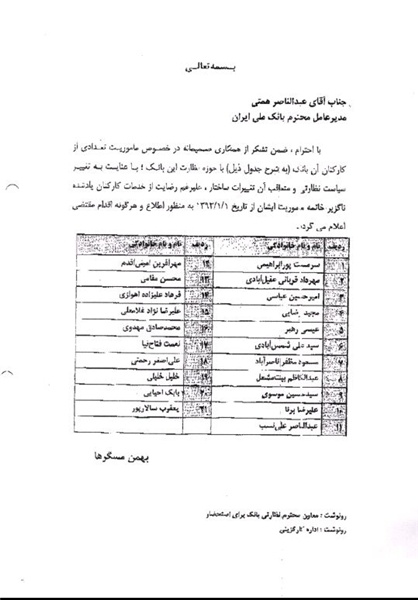 بسمه تعالی
جناب آقای عبدالناصر همتی
مدیرعامل محترم بانک ملی ایران
با احترام، ضمن تشکر از همکاری صمیمانه در خصوص ماموریت تعدادی از
کارکنان آن بانک (به شرح جدول ذیل) با حوزه نظارت این بانک؛ با عنایت به تغییر
سیاست نظارتی و متعاقب آن تغییرات ساختار، علیرغم رضایت از خدمات کارکنان یادشده
ناگزیر خاتمه ماموریت ایشان از تاریخ ۱۳۹۲/۱/۱ به منظور اطلاع و هرگونه اقدام مقتضی
اعلام می گردد.
ردیف نام و نام خانوادگی ردیف نام و نام خانوادگی
۱ سرمست پورابراهیمی ۱۲ مهرآفرین امینی‌اقدم
۲ مهرداد قربانی عقیل‌آبادی ۱۳ محسن مقامی
۳ امیرحسین عباسی ۱۴ فرهاد علیزاده اهوازی
۴ مجید رضایی ۱۵ علیرضا نژاد غلامعلی
۵ عیسی رهبر ۱۶ محمدصادق مهدوی
۶ سید علی شمس‌آبادی ۱۷ نعمت فتاح‌نیا
۷ مسعود مظفر ناصرآباد ۱۸ علی‌اصغر رحمتی
۸ عبدالکاظم بیت‌مشعل ۱۹ خلیل خلیلی
۹ سیدحسین موسوی ۲۰ بابک احیایی
۱۰ علیرضا برنا ۲۱ یعقوب سالارپور
۱۱ عبدالناصر علی‌نسب
بهمن مسگرها
رونوشت: معاون محترم نظارتی بانک برای استحضار
رونوشت: اداره کارگزینی